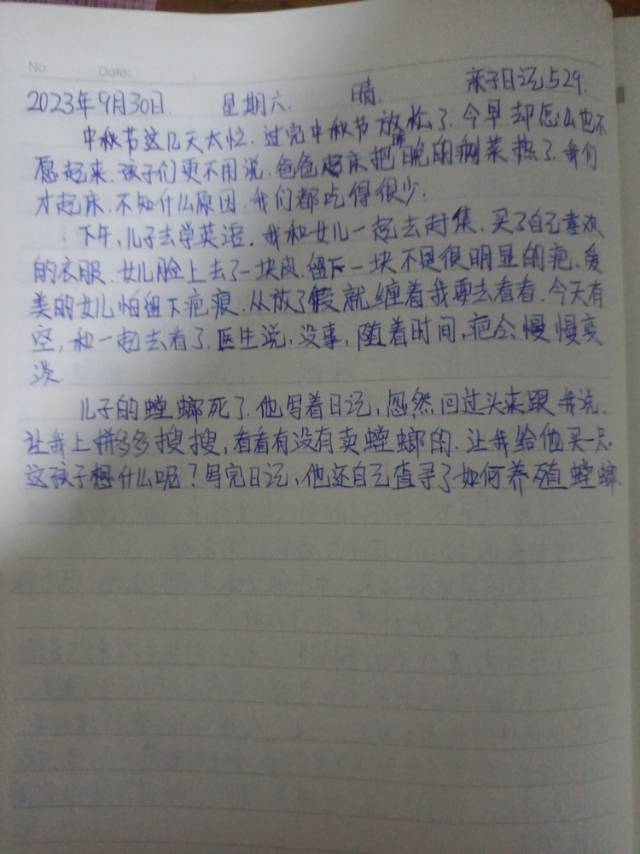 No:    Date:
亲子日记529.
2023年9月30日.  星期六.  晴.
中秋节这几天太忙.过完中秋节放松了.今早却怎么也不
愿起来.孩子们更不用说.爸爸起床把昨晚的剩菜热了.我们
才起床.不知什么原因.我们都吃得很少.
下午,儿子去学英语.我和女儿一起去赶集.买了自己喜欢
的衣服.女儿脸上去了一块皮.留下一块不是很明显的疤.爱
美的女儿怕留下疤痕.从放了假就缠着我要去看看.今天有
空,和一起去看了.医生说,没事,随着时间,疤会慢慢变
淡.
儿子的螳螂死了.他写着日记,忽然回过头来跟我说.
让我上拼多多搜搜,看看有没有卖螳螂的.让我给他买一只.
这孩子想什么呢?写完日记,他还自己查寻了如何养殖螳螂.